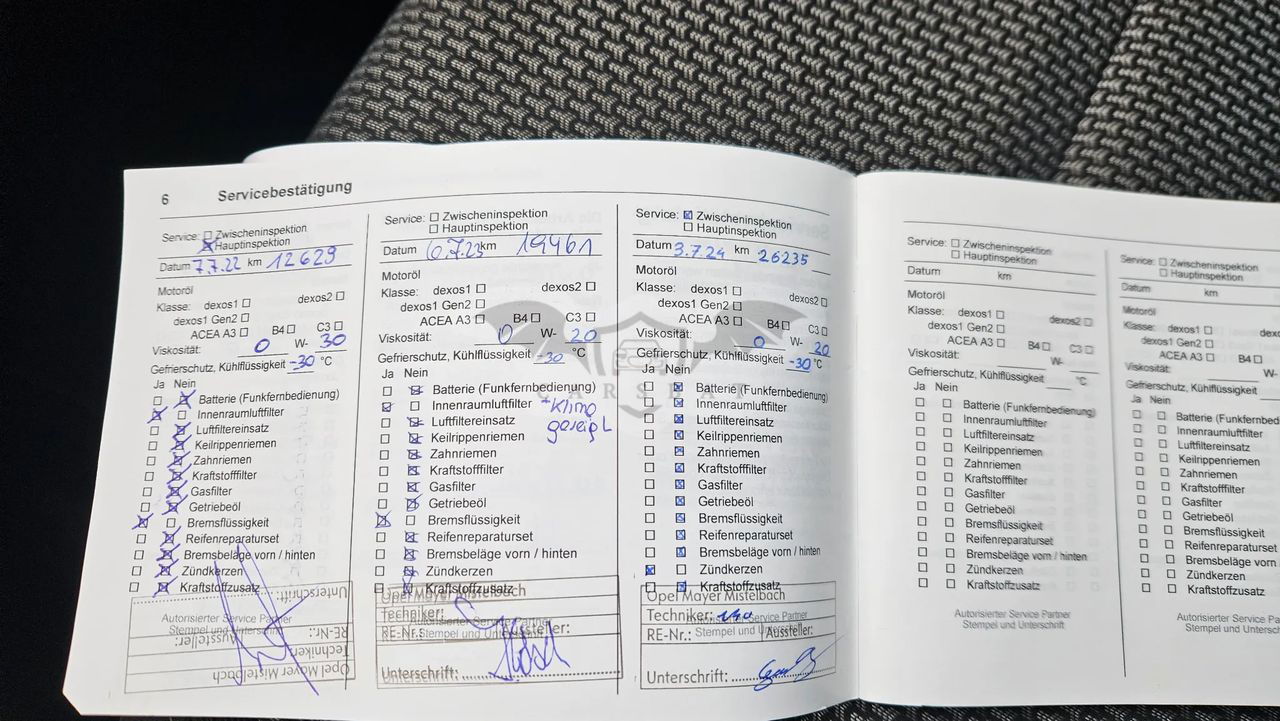 6 Servicebestätigung
Service: Zwischeninspektion
Hauptinspektion
Datum 7.7.22 km 12629
Motoröl
Klasse: dexos1 dexos2
dexos1 Gen2
ACEA A3 B4 C3
Viskosität: 0 W- 30
Gefrierschutz, Kühlflüssigkeit -30 °C
Ja Nein
Batterie (Funkfernbedienung)
Innenraumluftfilter
Luftfiltereinsatz
Keilrippenriemen
Zahnriemen
Kraftstofffilter
Gasfilter
Getriebeöl
Bremsflüssigkeit
Reifenreparaturset
Bremsbeläge vorn / hinten
Zündkerzen
Kraftstoffzusatz
Autorisierter Service Partner
Stempel und Unterschrift
Unterschrift:
Aussteller:
RE-Nr.:
Techniker:
Opel Mayer Mistelbach
Service: Zwischeninspektion
Hauptinspektion
Datum 6.7.23 km 19461
Motoröl
Klasse: dexos1 dexos2
dexos1 Gen2
ACEA A3 B4 C3
Viskosität: 0 W- 20
Gefrierschutz, Kühlflüssigkeit -30 °C
Ja Nein
Batterie (Funkfernbedienung)
Innenraumluftfilter
+Klima
Luftfiltereinsatz
Keilrippenriemen
Zahnriemen
Kraftstofffilter
Gasfilter
Getriebeöl
Bremsflüssigkeit
Reifenreparaturset
Bremsbeläge vorn / hinten
Zündkerzen
Kraftstoffzusatz
Opel Mayer Mistelbach
Techniker:
Autorisierter Service Partner
RE-Nr.: Stempel und Unterschrift Aussteller:
Unterschrift:
Service: Zwischeninspektion
Hauptinspektion
Datum 3.7.24 km 26235
Motoröl
Klasse: dexos1 dexos2
dexos1 Gen2
ACEA A3 B4 C3
Viskosität: 0 W- 20
Gefrierschutz, Kühlflüssigkeit -30 °C
Ja Nein
Batterie (Funkfernbedienung)
Innenraumluftfilter
Luftfiltereinsatz
Keilrippenriemen
Zahnriemen
Kraftstofffilter
Gasfilter
Getriebeöl
Bremsflüssigkeit
Reifenreparaturset
Bremsbeläge vorn / hinten
Zündkerzen
Kraftstoffzusatz
Opel Mayer Mistelbach
Techniker:
Autorisierter Service Partner
RE-Nr.: Stempel und Unterschrift Aussteller:
Unterschrift:
CARSBAT
Service: Zwischeninspektion
Hauptinspektion
Datum km
Motoröl
Klasse: dexos1 dexos2
dexos1 Gen2
ACEA A3 B4 C3
Viskosität: W-
Gefrierschutz, Kühlflüssigkeit °C
Ja Nein
Batterie (Funkfernbedienung)
Innenraumluftfilter
Luftfiltereinsatz
Keilrippenriemen
Zahnriemen
Kraftstofffilter
Gasfilter
Getriebeöl
Bremsflüssigkeit
Reifenreparaturset
Bremsbeläge vorn / hinten
Zündkerzen
Kraftstoffzusatz
Autorisierter Service Partner
Stempel und Unterschrift
Service: Zwischeninspektion
Hauptinspektion
Datum km
Motoröl
Klasse: dexos1
dexos1 Gen2
ACEA A3 B4
Viskosität: W-
Gefrierschutz, Kühlflüssigkeit
Ja Nein
Batterie (Funkfernbed
Innenraumluftfilter
Luftfiltereinsatz
Keilrippenriemen
Zahnriemen
Kraftstofffilter
Gasfilter
Getriebeöl
Bremsflüssigkeit
Reifenreparaturset
Bremsbeläge vorn / hint
Zündkerzen
Kraftstoffzusatz
Autorisierter Service Par
Stempel und Untersch